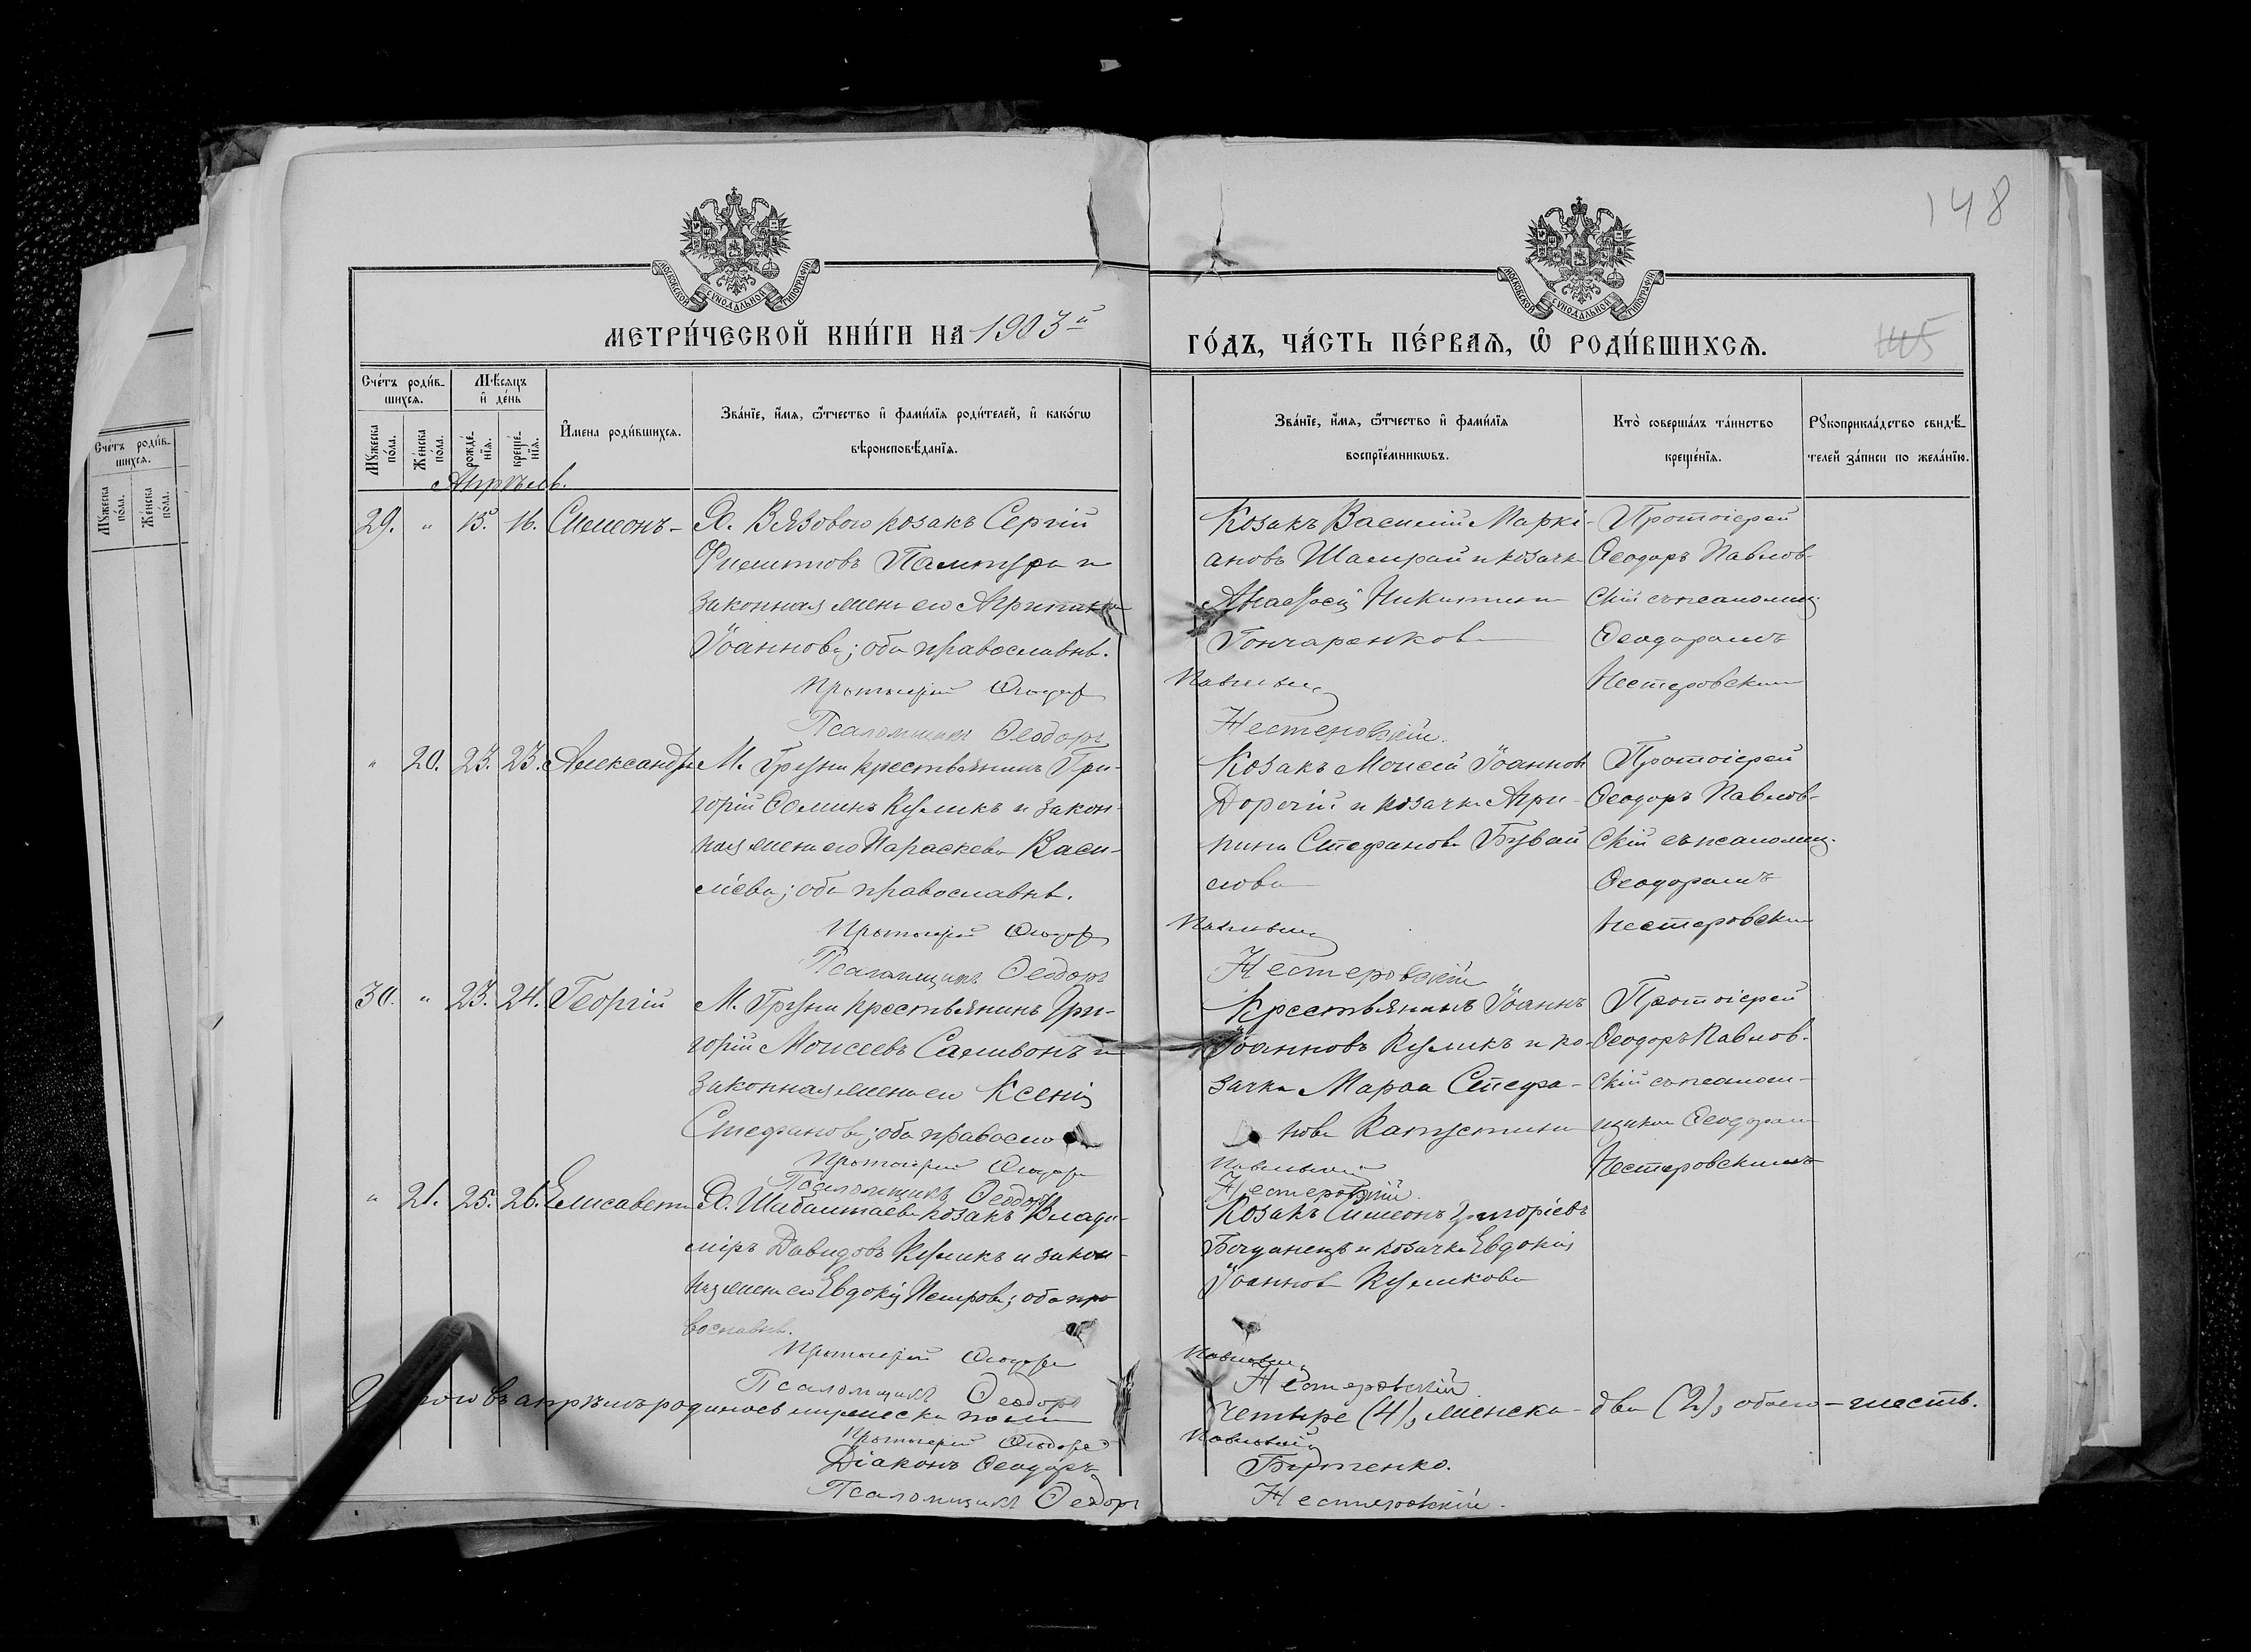 148
МОСКОВСКОЙ СѴНОДАЛЬНОЙ ТИПОГРАФІИ
МОСКОВСКОЙ СѴНОДАЛЬНОЙ ТИПОГРАФІИ
МЕТРИ́ЧЕСКОЙ КНИ́ГИ НА 1903й
ГО́ДЪ, ЧА́СТЬ ПЕ́РВАѦ, Ѡ҆ РОДИ́ВШИХСѦ.
145
Сче́тъ роди́в-
шихсѧ.
Мꙋ́жеска по́ла.
Же́нска по́ла.
Мѣ́сѧцъ
и҆ де́нь
рожде́-нїѧ.
креще́-нїѧ.
И҆́мена роди́вшихсѧ.
Зва́нїе, и҆́мѧ, ѻ҆́тчество и҆ фами́лїѧ роди́телей, и҆ како́гѡ
вѣроисповѣ́данїѧ.
Зва́нїе, и҆́мѧ, ѻ҆́тчество и҆ фами́лїѧ
воспрїе́мникѡвъ.
Кто̀ соверша́лъ та́инство
креще́нїѧ.
Рꙋкоприкла́дство свидѣ́-
телей за́писи по жела́нїю.
Сче́тъ роди́в-
шихсѧ.
Мꙋ́жеска по́ла.
Же́нска по́ла.
Апрѣль.
29. " 15. 16. Симеонъ - Х. Вязового козакъ Сергій
Филиповъ Палитура и
законная жена его Агрипина
Іоаннова; оба православнѣ.
Протоіерей Ѳеодоръ
Псаломщикъ Ѳеодоръ
Козакъ Василій Маркі-
ановъ Шамрай и козачка
Анастасія Никитина
Гончаренкова
Павловскій
Нестеровскій.
Протоіерей
Ѳеодоръ Павлов-
скій съ псаломщ.
Ѳеодоромъ
Нестеровским
" 20. 23. 23. Александра М. Груни крестьянинъ Гри-
горій Ѳоминъ Куликъ и закон-
ная жена его Параскева Васи-
ліева; оба православнѣ.
Протоіерей Ѳеодоръ
Псаломщикъ Ѳеодоръ
Козакъ Моисей Іоанновъ
Дорогій и козачка Агри-
пина Стефанова Бувай
лова
Павловскій
Нестеровскій
Протоіерей
Ѳеодоръ Павлов-
скій съ псаломщ.
Ѳеодоромъ
Нестеровским
30. " 23. 24. Георгій М. Груни крестьянинъ Гри-
горій Моисеевъ Саливонъ и
законная жена его Ксенія
Стефанова; оба правосла
Протоіерей Ѳеодоръ
Псаломщикъ Ѳеодоръ
Крестьянинъ Іоаннъ
Іоанновъ Куликъ и ко-
зачка Марѳа Стефа-
нова Капустина
Павловскій
Нестеровскій.
Протоіерей
Ѳеодоръ Павлов-
скій съ псалом-
щиком Ѳеодором
Нестеровскимъ
" 21. 25. 26. Елисавета Х. Шабалтаева козакъ Влади-
міръ Давидовъ Куликъ и закон-
ная жена его Евдокія Петрова; оба пра
вославнѣ.
Протоіерей Ѳеодоръ
Псаломщикъ Ѳеодоръ
Козакъ Симеонъ Григоріевъ
Богданецъ и козачка Евдокія
Іоаннова Куликова
Павловскій
Нестеровскій.
въ апрѣлѣ родилось мужеска пола
четыре (4), женска - два (2), обоего - шесть.
Протоіерей Ѳеодоръ Павловскій
Діаконъ Ѳеодоръ
Псаломщикъ Ѳеодоръ Нестеровскій.